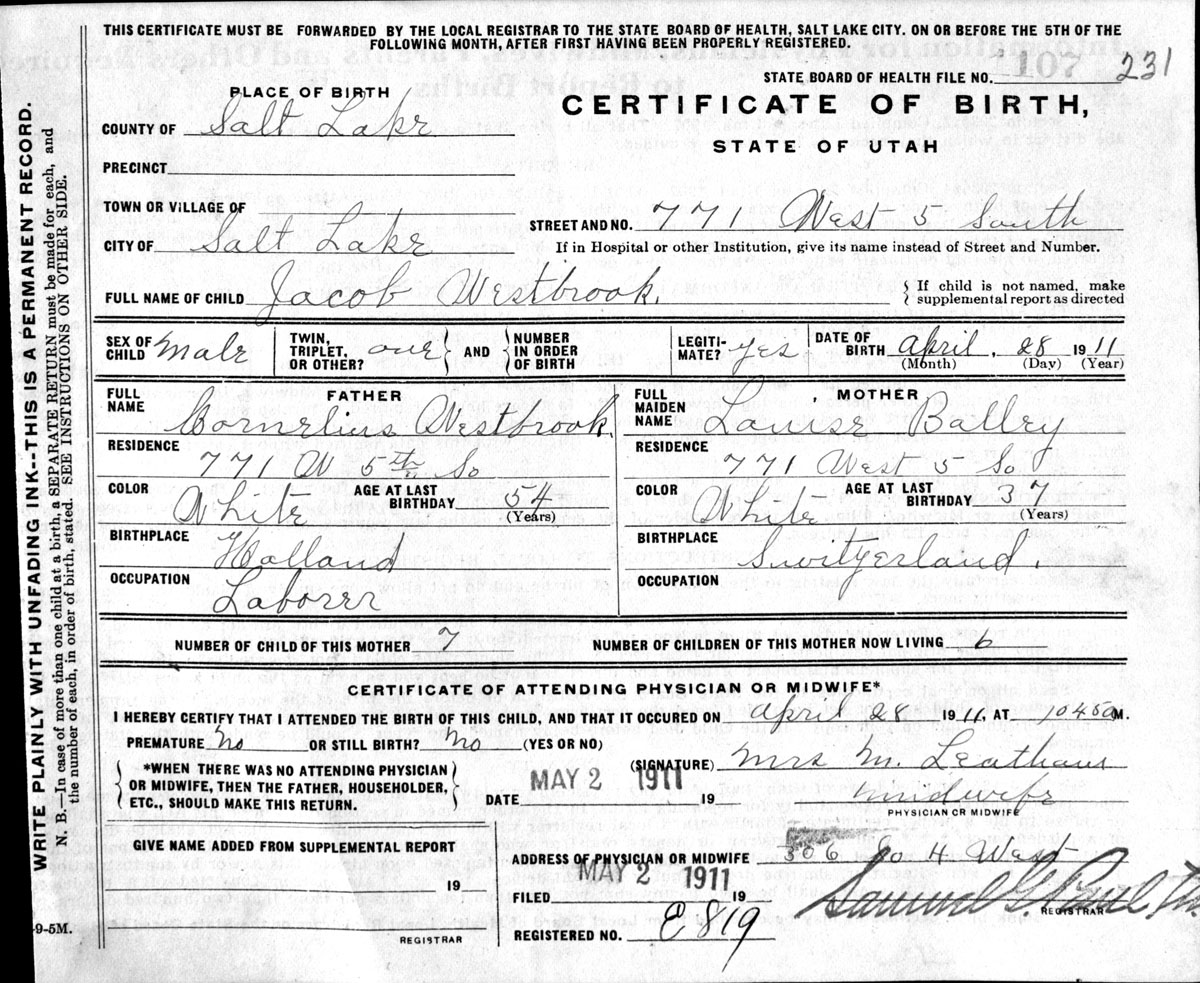 THIS CERTIFICATE MUST BE FORWARDED BY THE LOCAL REGISTRAR TO THE STATE BOARD OF HEALTH, SALT LAKE CITY. ON OR BEFORE THE 5TH OF THE
FOLLOWING MONTH, AFTER FIRST HAVING BEEN PROPERLY REGISTERED.
STATE BOARD OF HEALTH FILE NO. 107 231
PLACE OF BIRTH
CERTIFICATE OF BIRTH,
STATE OF UTAH
COUNTY OF Salt Lake
PRECINCT
TOWN OR VILLAGE OF
STREET AND NO. 771 West 5 South
CITY OF Salt Lake
If in Hospital or other Institution, give its name instead of Street and Number.
FULL NAME OF CHILD Jacob Westbrook.
If child is not named, make
supplemental report as directed
SEX OF
CHILD Male
TWIN,
TRIPLET,
OR OTHER? one
AND
NUMBER
IN ORDER
OF BIRTH
LEGITI-
MATE? yes
DATE OF
BIRTH April. 28 1911
(Month) (Day) (Year)
FULL
NAME
FATHER
Cornelius Westbrook.
RESIDENCE
771 W 5th So
COLOR
White
AGE AT LAST
BIRTHDAY 54
(Years)
BIRTHPLACE
Holland
OCCUPATION
Laborer
FULL
MAIDEN
NAME
MOTHER
Louise Balley
RESIDENCE
771 West 5 So
COLOR
White
AGE AT LAST
BIRTHDAY 37
(Years)
BIRTHPLACE
Switzerland.
OCCUPATION
NUMBER OF CHILD OF THIS MOTHER 7
NUMBER OF CHILDREN OF THIS MOTHER NOW LIVING 6
CERTIFICATE OF ATTENDING PHYSICIAN OR MIDWIFE*
I HEREBY CERTIFY THAT I ATTENDED THE BIRTH OF THIS CHILD, AND THAT IT OCCURED ON April 28 1911, AT 1045 M.
PREMATURE No OR STILL BIRTH? No (YES OR NO)
*WHEN THERE WAS NO ATTENDING PHYSICIAN
OR MIDWIFE, THEN THE FATHER, HOUSEHOLDER,
ETC., SHOULD MAKE THIS RETURN.
(SIGNATURE) Mrs M. Leatham
DATE MAY 2 1911 19
midwife
PHYSICIAN OR MIDWIFE
GIVE NAME ADDED FROM SUPPLEMENTAL REPORT
19
REGISTRAR
ADDRESS OF PHYSICIAN OR MIDWIFE 306 So 4 West
FILED MAY 2 1911 19
Samuel G Paul
REGISTRAR
REGISTERED NO. E 819
WRITE PLAINLY WITH UNFADING INK--THIS IS A PERMANENT RECORD.
N. B.—In case of more than one child at a birth, a SEPARATE RETURN must be made for each, and
the number of each, in order of birth, stated. SEE INSTRUCTIONS ON OTHER SIDE.
-9-5M.